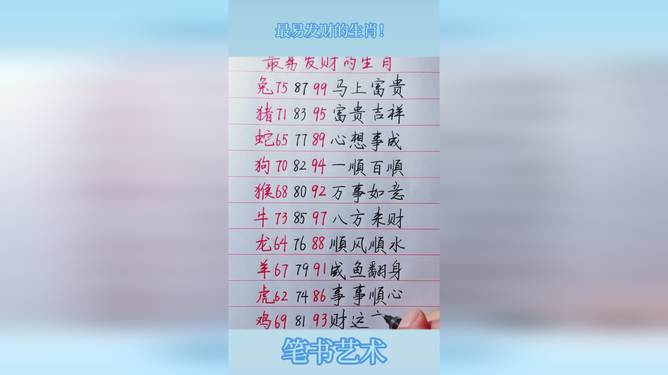 最易发财的生肖！
最易发财的生肖
兔75 87 99马上富贵
猪71 83 95富贵吉祥
蛇65 77 89心想事成
狗70 82 94一顺百顺
猴68 80 92万事如意
牛73 85 97八方来财
龙64 76 88顺风顺水
羊67 79 91咸鱼翻身
虎62 74 86事事顺心
鸡69 81 93财运
笔书艺术